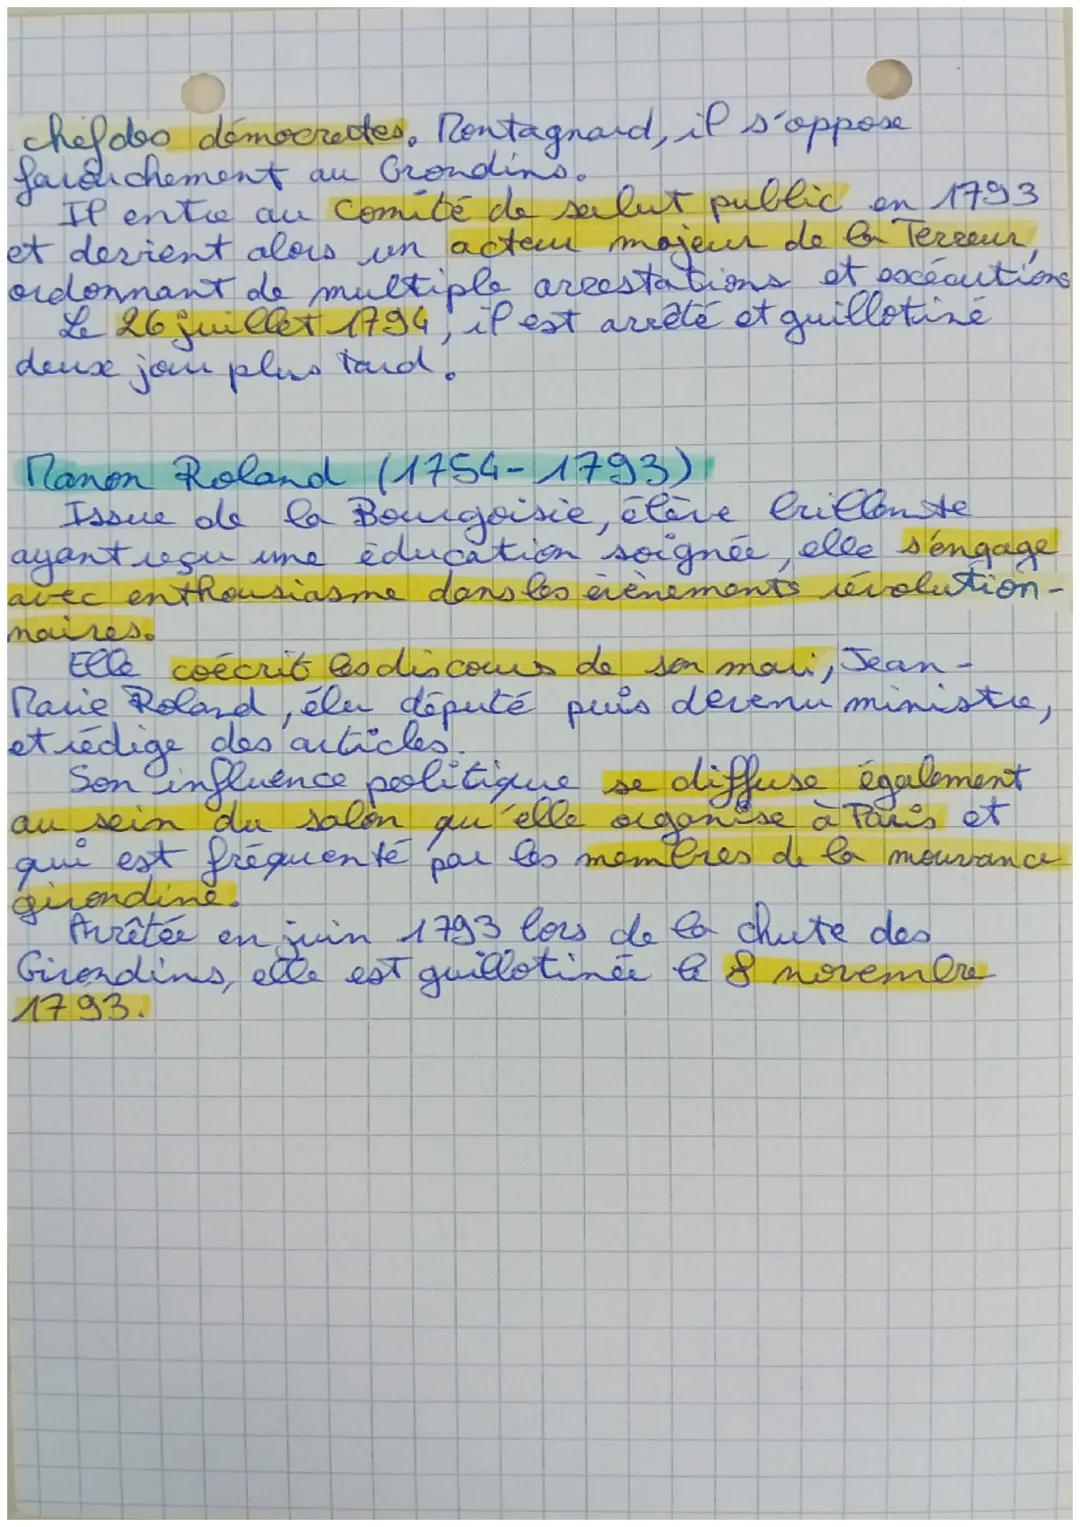 chef des démocrates. Montagnard, il s'oppose
farouchement au Grondins.
Il entre au Comité de salut public en 1793
et devient alors un acteur majeur de la Terreur,
ordonnant de multiple arrestations et exécutions
Le 26 juillet 1794, il est arrêté et guillotiné
deux jour plus tard.
Manon Roland (1754-1793)
Issue de la Bourgoisie, élève brillante
ayant reçu une éducation soignée, elle s'engage
avec enthousiasme dans les évènements révolution-
naires.
Elle coécrit les discours de son mari, Jean-
Marie Roland, élu député puis devenu ministre,
et rédige des articles.
Son influence politique se diffuse également
au sein du salon qu'elle organise à Paris et
qui est fréquenté par les membres de la mouvance
girondine.
Arrêtée en juin 1793 lors de la chute des
Girondins, elle est guillotinée le 8 novembre
1793.